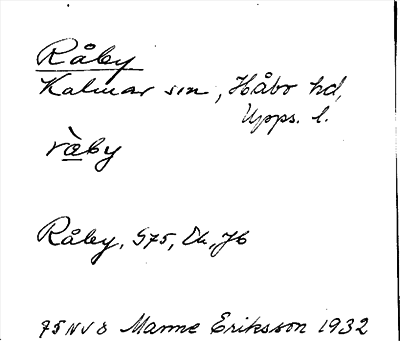 Råby
Kalmar sn, Håbo hd,
Upps. l.
ràby
Råby, S75, Ek, Jb
75 NV 8 Manne Eriksson 1932